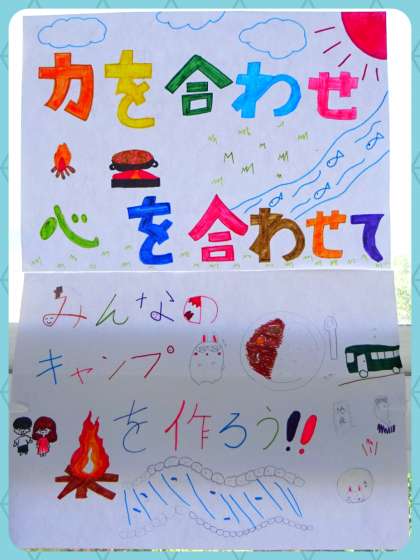 力を合わせ
心を合わせて
みんなの
キャンプ
を作ろう!!